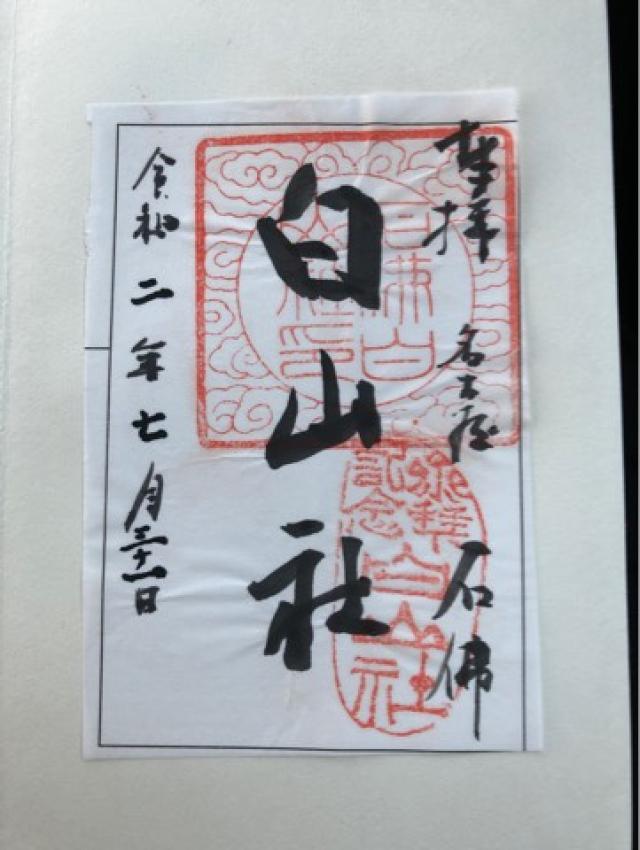 奉拝 名古屋 石佛
白山社
令和二年七月三十一日
石佛白
山社印
参拝
記念
白山社